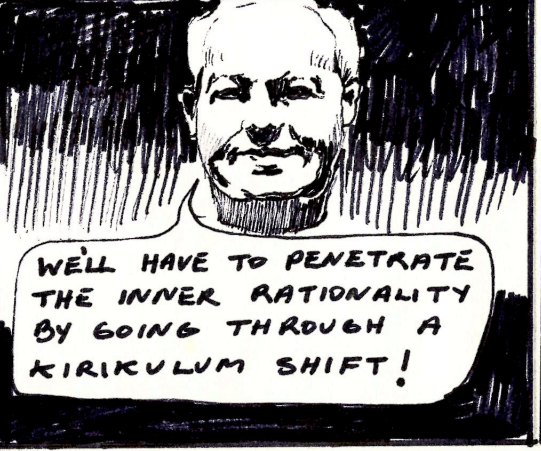 WE'LL HAVE TO PENETRATE
THE INNER RATIONALITY
BY GOING THROUGH A
KIRIKULUM SHIFT!